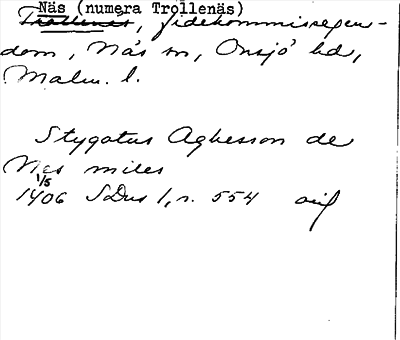 Näs (numera Trollenäs)
Trollenäs, fideikommissegen-
dom, Näs sn, Onsjö hd,
Malm. l.
Stygotus Aghesson de
Nes miles
1/5
1406 SDns 1, s. 554 orig